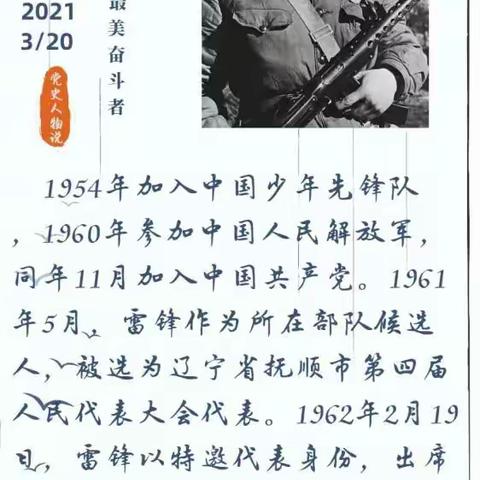 2021
3/20
最美奋斗者
党史人物说
1954年加入中国少年先锋队
，1960年参加中国人民解放军，
同年11月加入中国共产党。1961
年5月，雷锋作为所在部队候选
人，被选为辽宁省抚顺市第四届
人民代表大会代表。1962年2月19
日，雷锋以特邀代表身份，出席